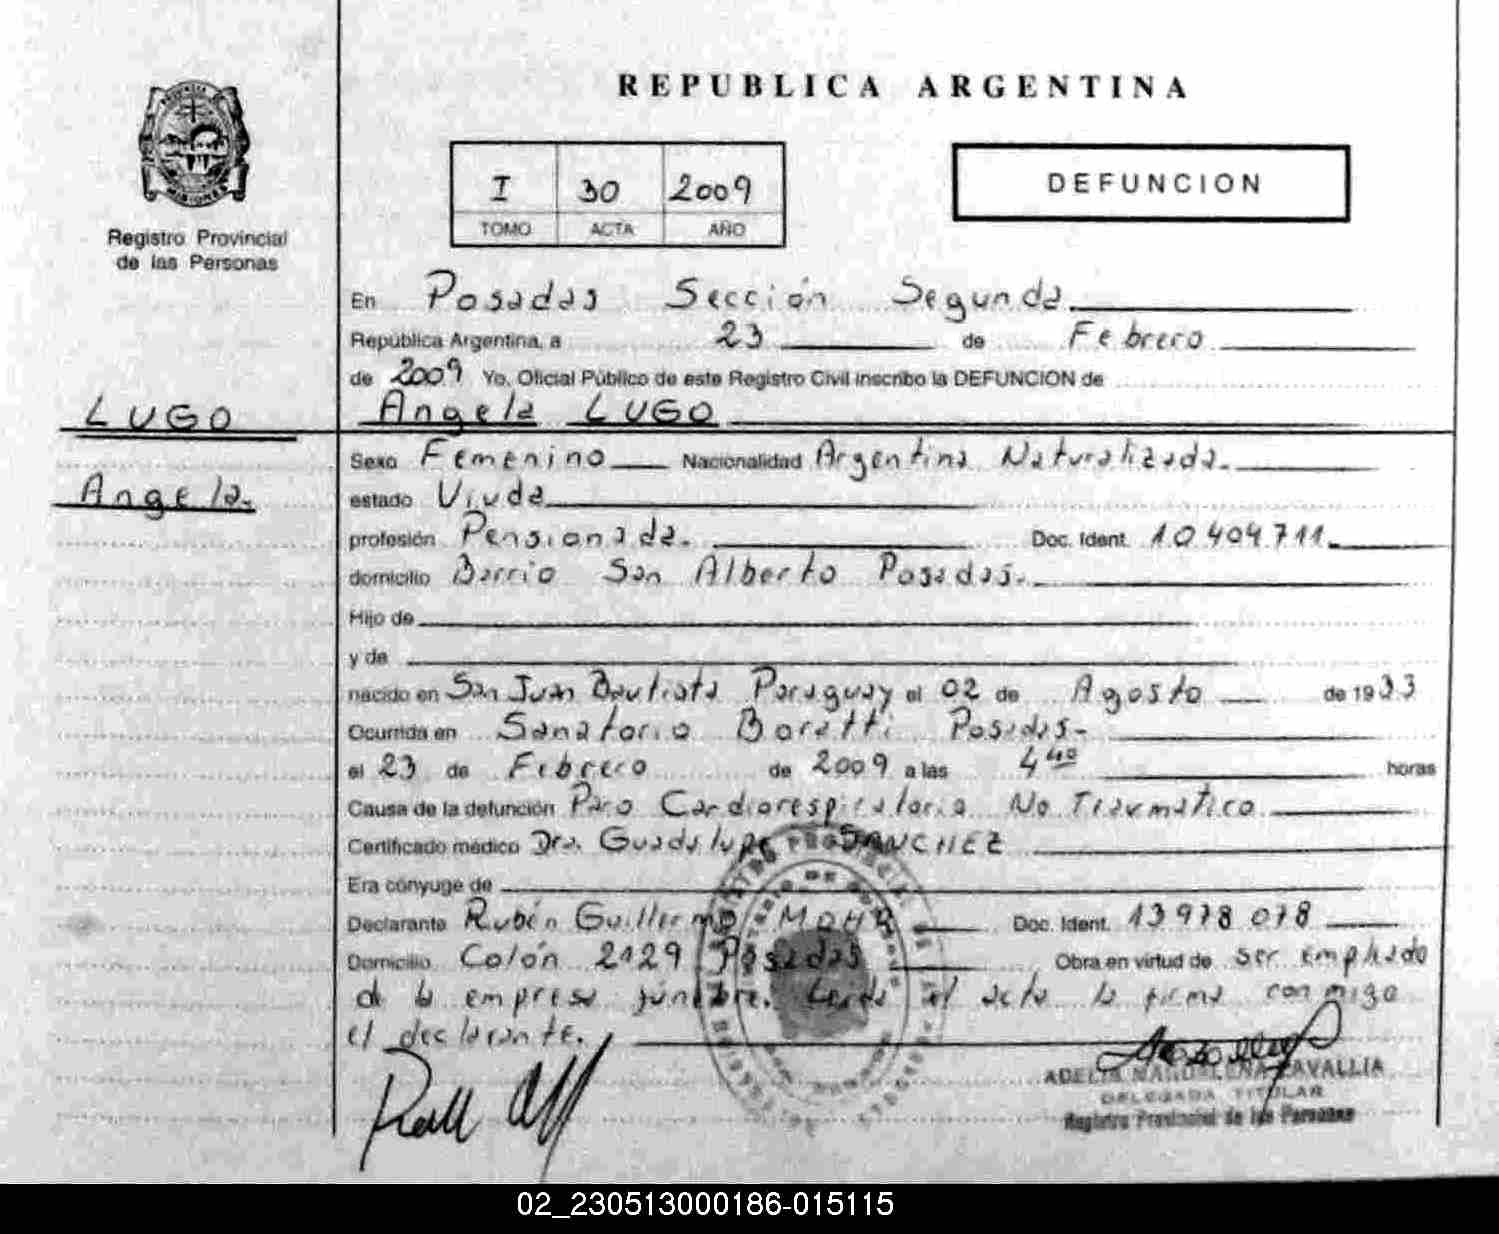 REPUBLICA ARGENTINA
I 30 2009
TOMO ACTA AÑO
DEFUNCION
Registro Provincial
de las Personas
LUGO
Angela.
En Posadas Sección Segunda
República Argentina, a 23 de Febrero
de 2009 Yo, Oficial Público de este Registro Civil inscribo la DEFUNCION de
Angela LUGO
Sexo Femenino Nacionalidad Argentina Naturalizada.
estado Viuda
profesión Pensionada. Doc. Ident. 10.404.711.
domicilio Barrio San Alberto Posadas.
Hijo de
y de
nacido en San Juan Bautista Paraguay el 02 de Agosto de 1933
Ocurrida en Sanatorio Boratti Posadas-
el 23 de Febrero de 2009 a las 4 40 horas
Causa de la defunción Paro Cardiorespiratorio No Traumático
Certificado médico Dra. Guadalupe SANCHEZ
Era cónyuge de
Declarante Rubén Guillermo Doc. Ident. 13978078
Domicilio Colón 2129 Posadas Obra en virtud de ser empleado
de la empresa fúnebre. Leida el acta la firma conmigo
el declarante.
ADELIA MAGDALENA CAVALLIA
DELEGADA TITULAR
Registro Provincial de las Personas
02_230513000186-015115